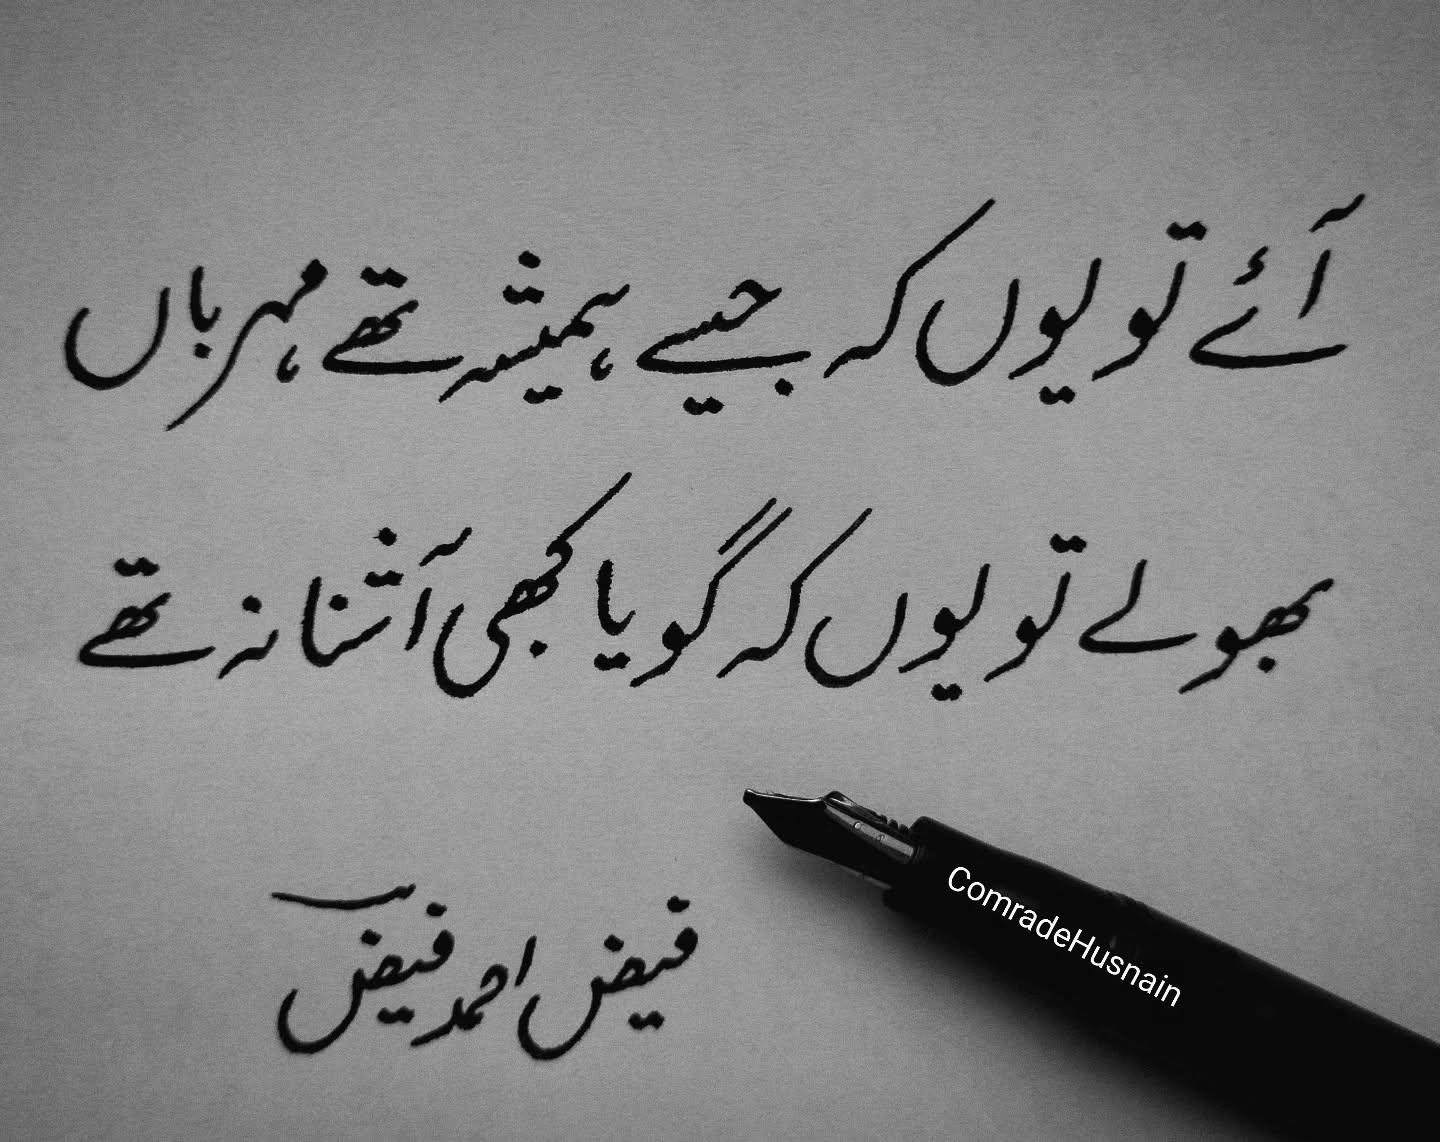 آئے تو یوں کہ جیسے ہمیشہ تھے مہرباں
بھولے تو یوں کہ گویا کبھی آشنا نہ تھے
فیض احمد فیض
ComradeHusnain